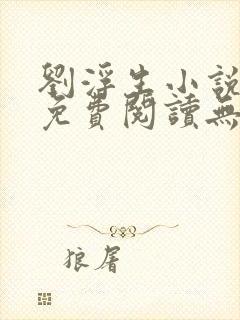 劉浮生小說
免費閱讀無
狼屠